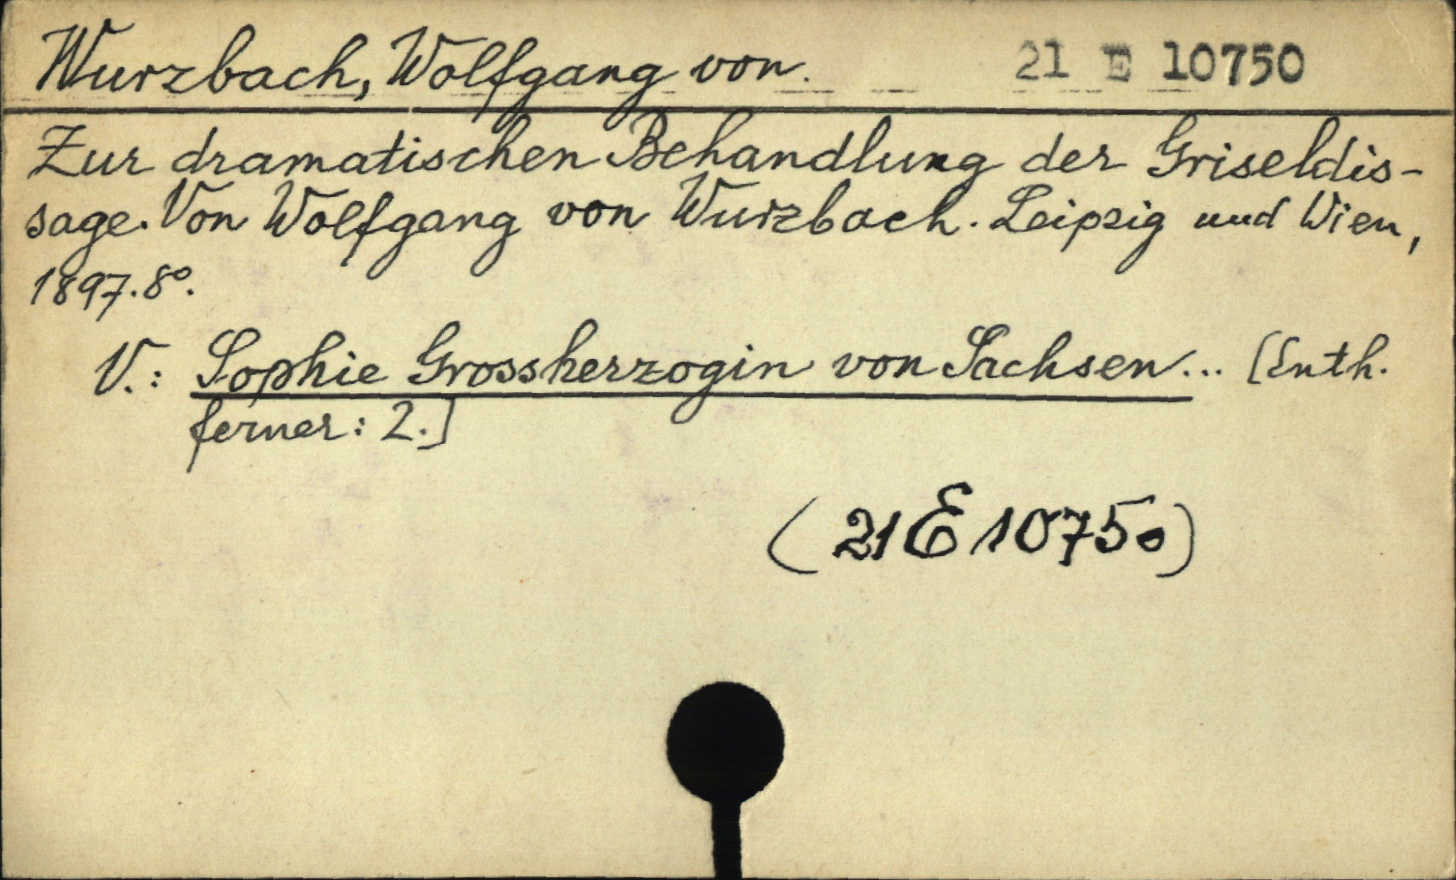 Wurzbach, Wolfgang von. 21 E 10750
Zur dramatischen Behandlung der Griseldis-
sage. Von Wolfgang von Wurzbach. Leipzig und Wien,
1897. 8º.
V.: Sophie Grossherzogin von Sachsen... [Enth.
ferner: 2.]
(21 E 10750)